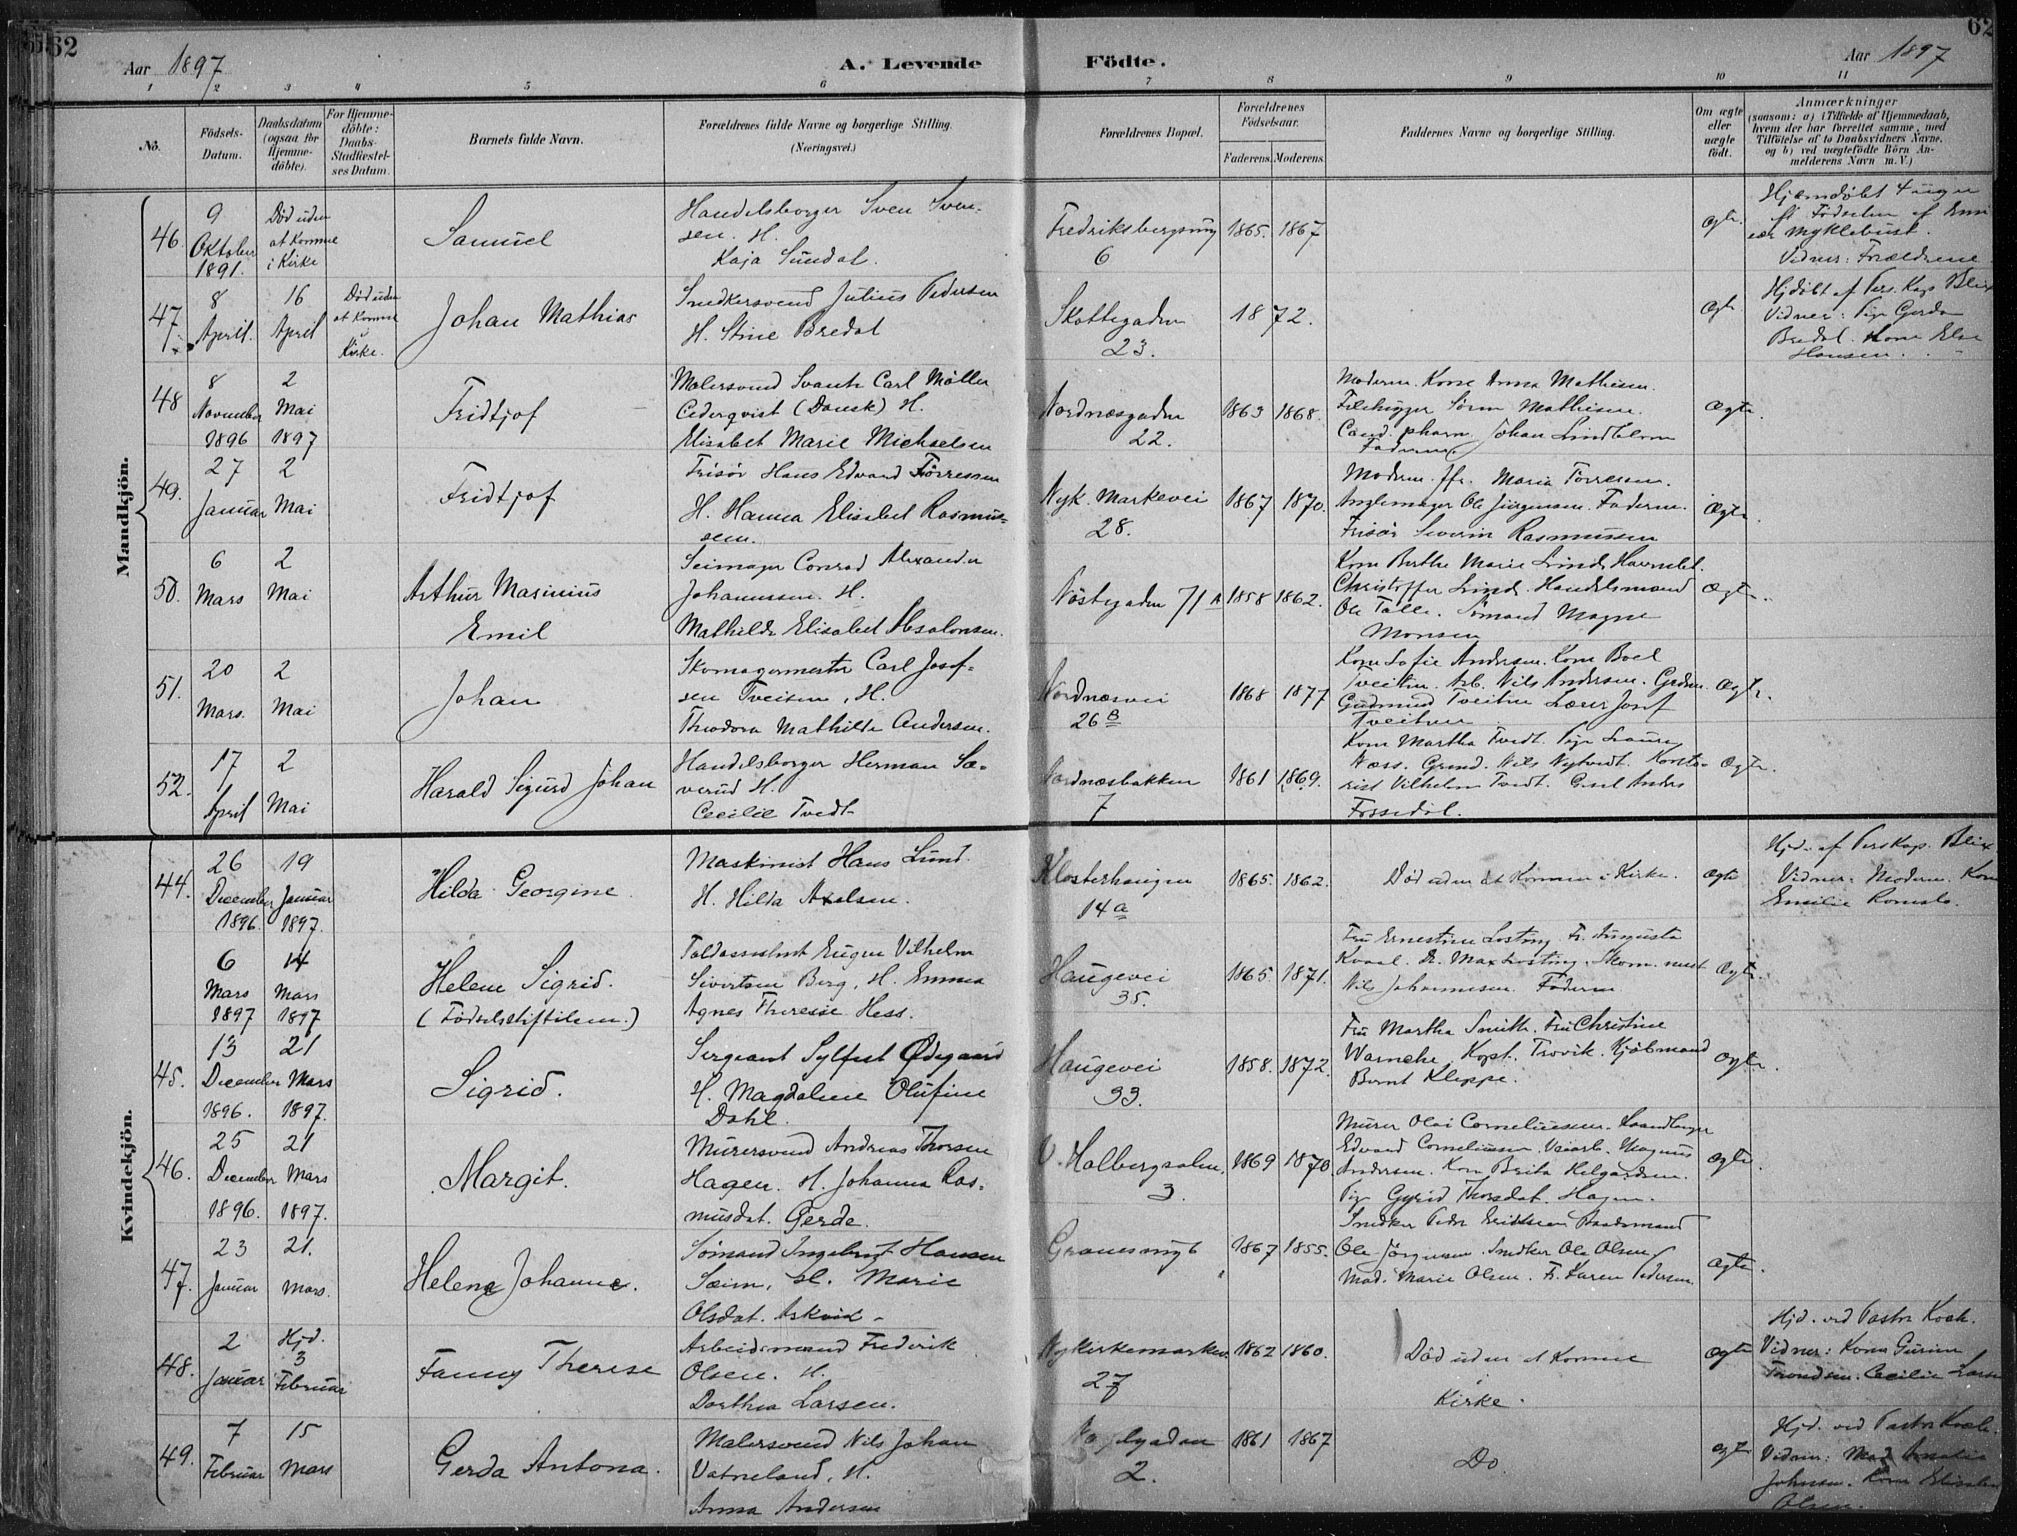 62
Aar 1897
A. Levende Födte.
Aar 1897
62
1 2 3 4 5 6 7 8 9 10 11
No.
Födsels-
Datum.
Daabsdatum
(ogsaa for
Hjemme-
döbte).
For Hjemme-
döbte:
Daabs-
Stadfæstel-
ses Datum.
Barnets fulde Navn.
Forældrenes fulde Navne og borgerlige Stilling.
(Næringsvei.)
Forældrenes Bopæl.
Forældrenes
Födselsaar.
Faderens. Moderens.
Faddernes Navne og borgerlige Stilling.
Om ægte
eller
uægte
født.
Anmærkninger
(saasom: a) i Tilfælde af Hjemmedaab,
hvem der har forrettet samme, med
Tilföielse af to Daabsvidners Navne,
og b) ved uægtefödte Börn An-
melderens Navn m. V.)
Mandkjön.
46.
9
Oktober
1891.
Död uden
at Komme
i Kirke
Samuel
Handelsborger Sven Sven-
sen. H.
Kaja Sundal.
Fredriksbergsmug
6
1865. 1867
ægte.
Hjemdöbt 4 uger
Födselen af
Myklebust.
Vidner: Forældrene
47.
8
April.
16
April
Död uden
at Komme
i
Kirke.
Johan Mathias
Snedkersvend Julius Pedersen
H. Stine Bredal
Skottegaden
23.
1872.
ægte.
Hjdöbt af Pers. Kap. Blix
Vidner: Pige Gerda
Bredal. Kone Else
Hansen.
48
8
November
1896
2
Mai
1897
Fridtjof
Malersvend Svante Carl Möller
Cederqvist (Dansk) H.
Elisabet Marie Michaelsen
Nordnæsgaden
22.
1863 1868.
Moderen. Kone Anna Mathisen.
Filehugger Sören Mathisen.
Cand. pharm. Johan Lindblom
Faderen.
Ægte.
49.
27
Januar
2
Mai
Fridtjof
Frisör Hans Edvard Törressen
H. Hanna Elisabet Rasmus-
sen.
Nyk. Markevei
28.
1867 1870.
Moderen. Maria Torresen.
Ole Jörgensen. Faderen.
Frisör Severin Rasmussen
Ægte
50.
6
Mars
2
Mai
Arthur Marinius
Emil
Seimager Conrad Alexander
Johannessen. H.
Mathilde Elisabet Absalonsen.
Nöstegaden 71 A
1858 1862.
Kone Berthe Marie Lind.
Christoffer Lind. Handelsmand
Ole Tolle. Sömand Magne
Monsen
Ægte.
51.
20
Mars.
2
Mai
Johan
Skomagermester Carl Josef-
sen Tveiten, H.
Theodora Mathilde Andersen.
Nordnæsvei
26 B
1868 1877
Kone Sofie Andersen. Kone Boel
Tveiten. Arb. Nils Andersen.
Gudmund Tveiten Lærer Josef
Tveiten
Ægte.
52.
17
April
2
Mai
Harald Sigurd Johan
Handelsborger Herman Sæ-
verud H.
Cecilie Tvedt
Nordnæsbakken
7
1861 1869.
Kone Martha Tvedt. Pige Laura
Næss. Nils
Vilhelm Tvedt. Anders
Fossedal.
Ægte.
Kvindekjön.
44.
26
December
1896.
19
Januar
1897.
Hilda Georgine
Maskinist Hans Lund.
H. Hilda Axelsen.
Klosterhaugen
14 a
1865. 1862.
Död uden at Komme i Kirke.
ægte
Hjd. af Perskap. Blix
Vidner. Moderen. Kone
Emilie
6
Mars
1897
14
Mars
1897
Helene Sigrid.
(Födselsstiftelsen.)
Toldassistent Eugen Vilhelm
Sivertsen Berg, H. Emma
Agnes Therese Hess.
Haugevei
35.
1865 1871.
Fru Ernestine Losting. Fr. Augusta
Kvaal. Dr. Max Losting. Skom. mest
Nils Johannesen. Faderen.
Ægte.
45.
13
December
1896.
21
Mars
1897.
Sigrid.
Sergeant Sylfest Ödegaard
H. Magdalene Olufine
Dahl.
Haugevei
33.
1858. 1872.
Fru Martha Smith. Fru Christine
Warncke. Kapt. Trovik. Kjöbmand
Bernt Kleppe.
ægte.
46.
25
December
1896.
21
Mars
1897.
Margit.
Murersvend Andreas Thorsen
Hagen. H. Johanna Ras-
musdat. Gerde.
V. Holbergsalm.
3.
1869 1870.
Murer Olai Corneliussen.
Edvard Corneliussen. Magnus
Andersen. Kone Brita Helgesen.
Pige Gyrid Thorsdat. Hagen.
Ægte.
47.
23
Januar
21.
Mars.
Helene Johanne.
Sömand Ingebrigt Hansen
Sæim, H. Marie
Olsdat. Askvik
Granesmug
1867 1855.
Snedker Peder Eriksen Baadsmand
Ole Jörgensen. Snedker Ole Olsen
Mad. Marie Olsen. Fr. Karen Pedersen.
ægte.
48.
2
Januar
Hjd.
3
Februar
Fanny Therese
Arbeidsmand Frederik
Olsen. H.
Dorthea Larsen.
Nykirkemarken.
27
1862 1860.
Död uden at Komme
Kirke.
ægte
Hjd. ved Pastor Koch.
Vidner: Kone Gurine
Trondsen. Cecilie Larsen
49.
7
Februar
15
Mars
Gerda Antona.
Malersvend Nils Johan
Vatneland, H.
Anna Andersen
2.
1861 1867
Do.
ægte
Hjd. ved Pastor Koch.
Vidner: Mad. Amalia
Johnsen. Kone Elisabet
Olsen.